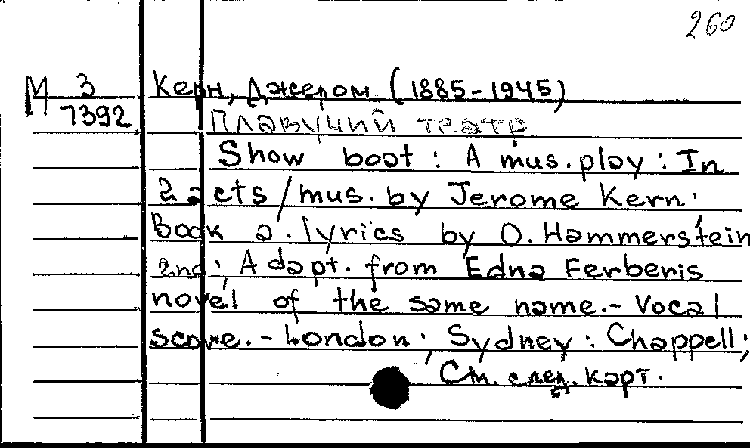 260
М 3 Керн, Джером (1885-1945)
7392 Плавучий театр
Show boat : A mus. play : In
2 acts / mus. by Jerome Kern;
Book a. lyrics by O. Hammerstein
2nd; Adapt. from Edna Ferberis
novel of the same name. - Vocal
score. - London; Sydney : Chappell;
См. след. карт.